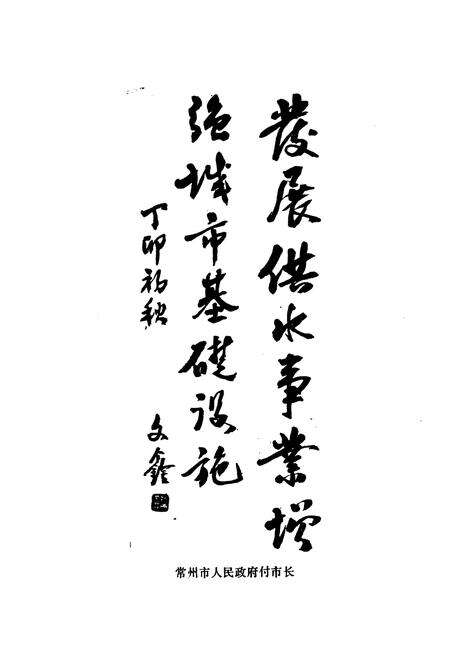 發展供水事業增
强城市基礎设施
丁卯初秋
文鑫
常州市人民政府付市长